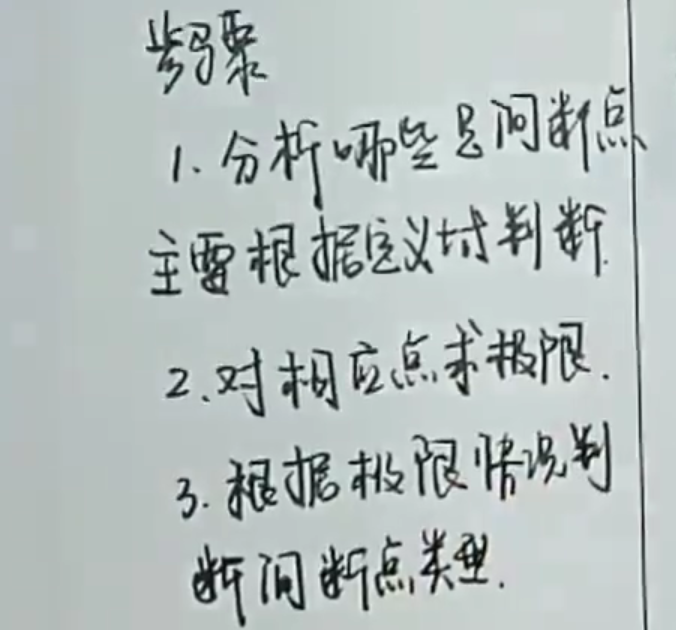 步骤
1. 分析哪些是间断点
主要根据定义域判断.
2. 对相应点求极限.
3. 根据极限情况判
断间断点类型.